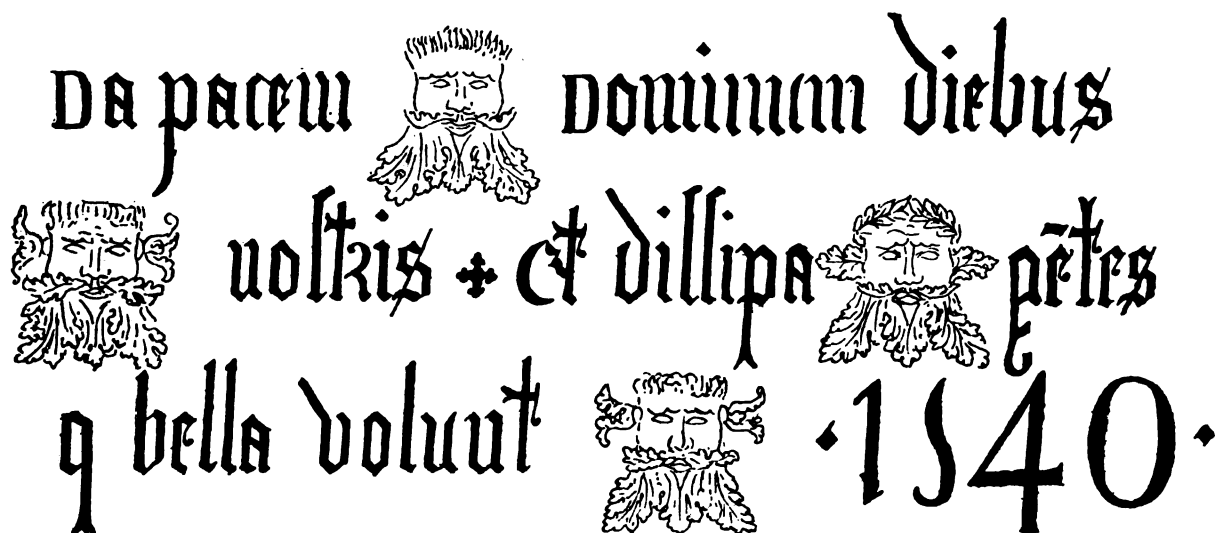 Da pacem Dominum diebus
uoſtris ✣ Et diſſipa gētes
q bella volunt · 1540 ·